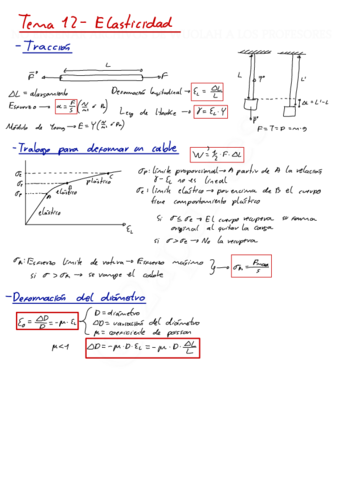 Tema 12 - Elasticidad
- Tracción
L
F F
ΔL = alargamiento
Deformación longitudinal → εL = ΔL/L
Esfuerzo → σ = F/S (N/m² ó Pa)
Ley de Hooke → σ = εL · Y
Módulo de Young → E = Y (N/m² ó Pa)
L L' T P ΔL = L' - L
F = T = P = m·g
- Trabajo para deformar un cable
W = 1/2 F · ΔL
σR σE σP A B C elástico plástico εL
σP: límite proporcional → A partir de A la relación
σ - εL no es lineal
σE: límite elástico → por encima de B el cuerpo
tiene comportamiento plástico
Si σ ≤ σE → El cuerpo recupera su forma
original al quitar la carga
si σ > σE → No la recupera
σR: Esfuerzo límite de rotura → Esfuerzo máximo
si σ > σR → se rompe el cable
σR = Fmáx/S
- Deformación del diámetro
εD = ΔD/D = -μ · εL
D = diámetro
ΔD = variación del diámetro
μ = coeficiente de poisson
μ < 1
ΔD = -μ · D · εL = -μ · D · ΔL/L